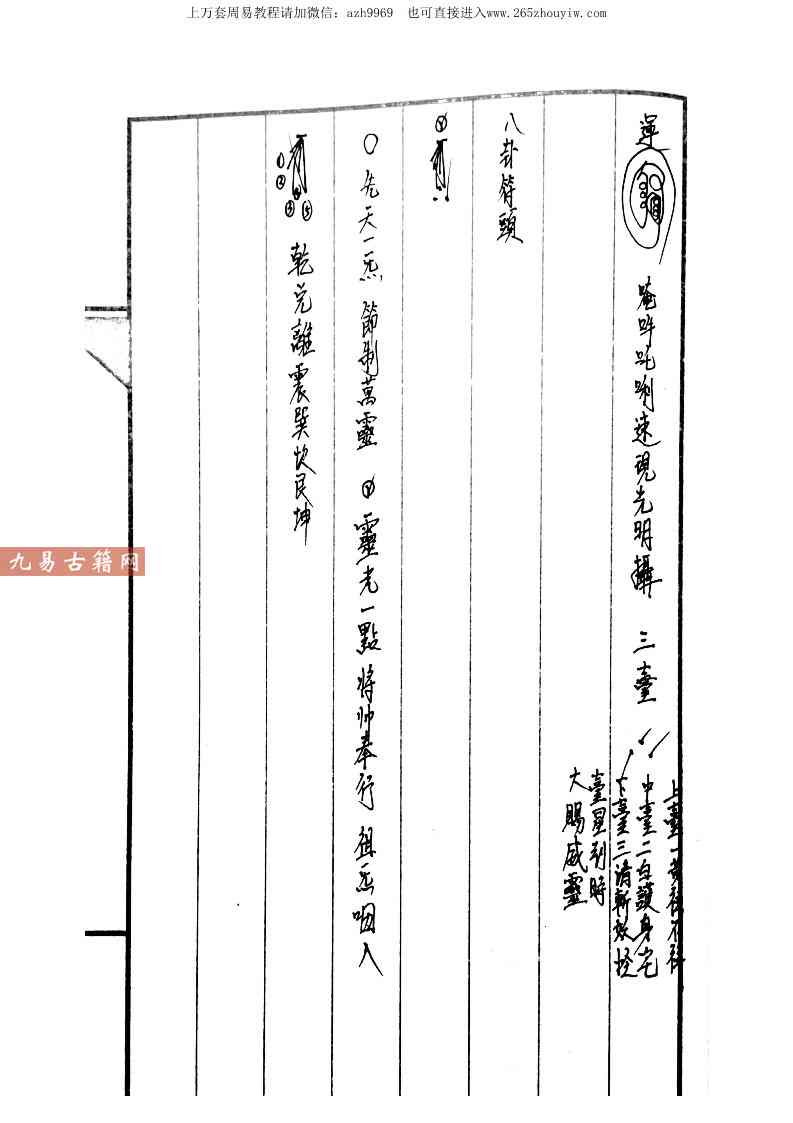 上万套周易教程请加微信：azh9969 也可直接进入www.265zhouyiw.com
運
唵吽吒唎速現光明攝 三臺
上臺一黄
中臺二白護身宅
下臺三清斬妖怪
臺星到時
大賜威靈
八卦符頭
〇先天一炁 節制萬靈 靈光一點 將帅奉行 祖炁咽入
① ② ③ ④ ⑤ 乾兑離震巽坎艮坤
九易古籍网